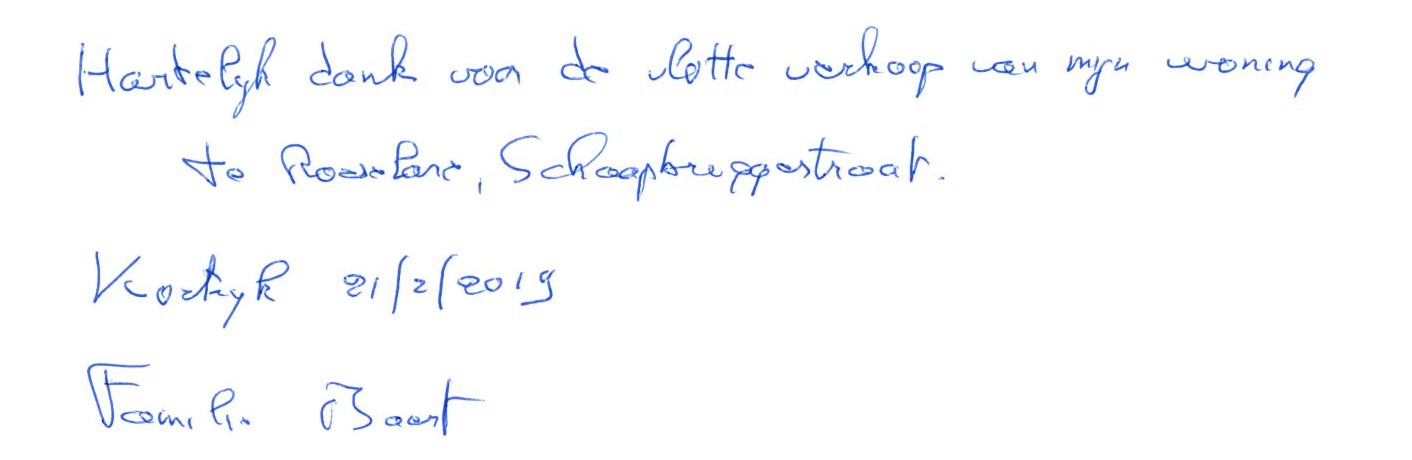 Hartelijk dank voor de vlotte verkoop van mijn woning
te Roeselare, Schaapbruggestraat.
Kortrijk 21/2/2019
Familie Baert